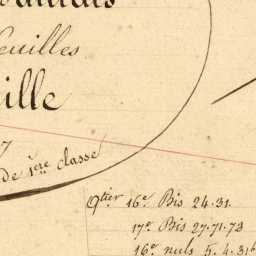 euilles
ille
7
de 1ère classe
9tier 16e Bis 24.31.
17e Bis 27.71.73
16e nuls 5.4.31b